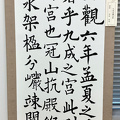 觀六年孟夏之
暑乎九成之宮此
宮也冠山抗殿
水架楹分巖竦闕